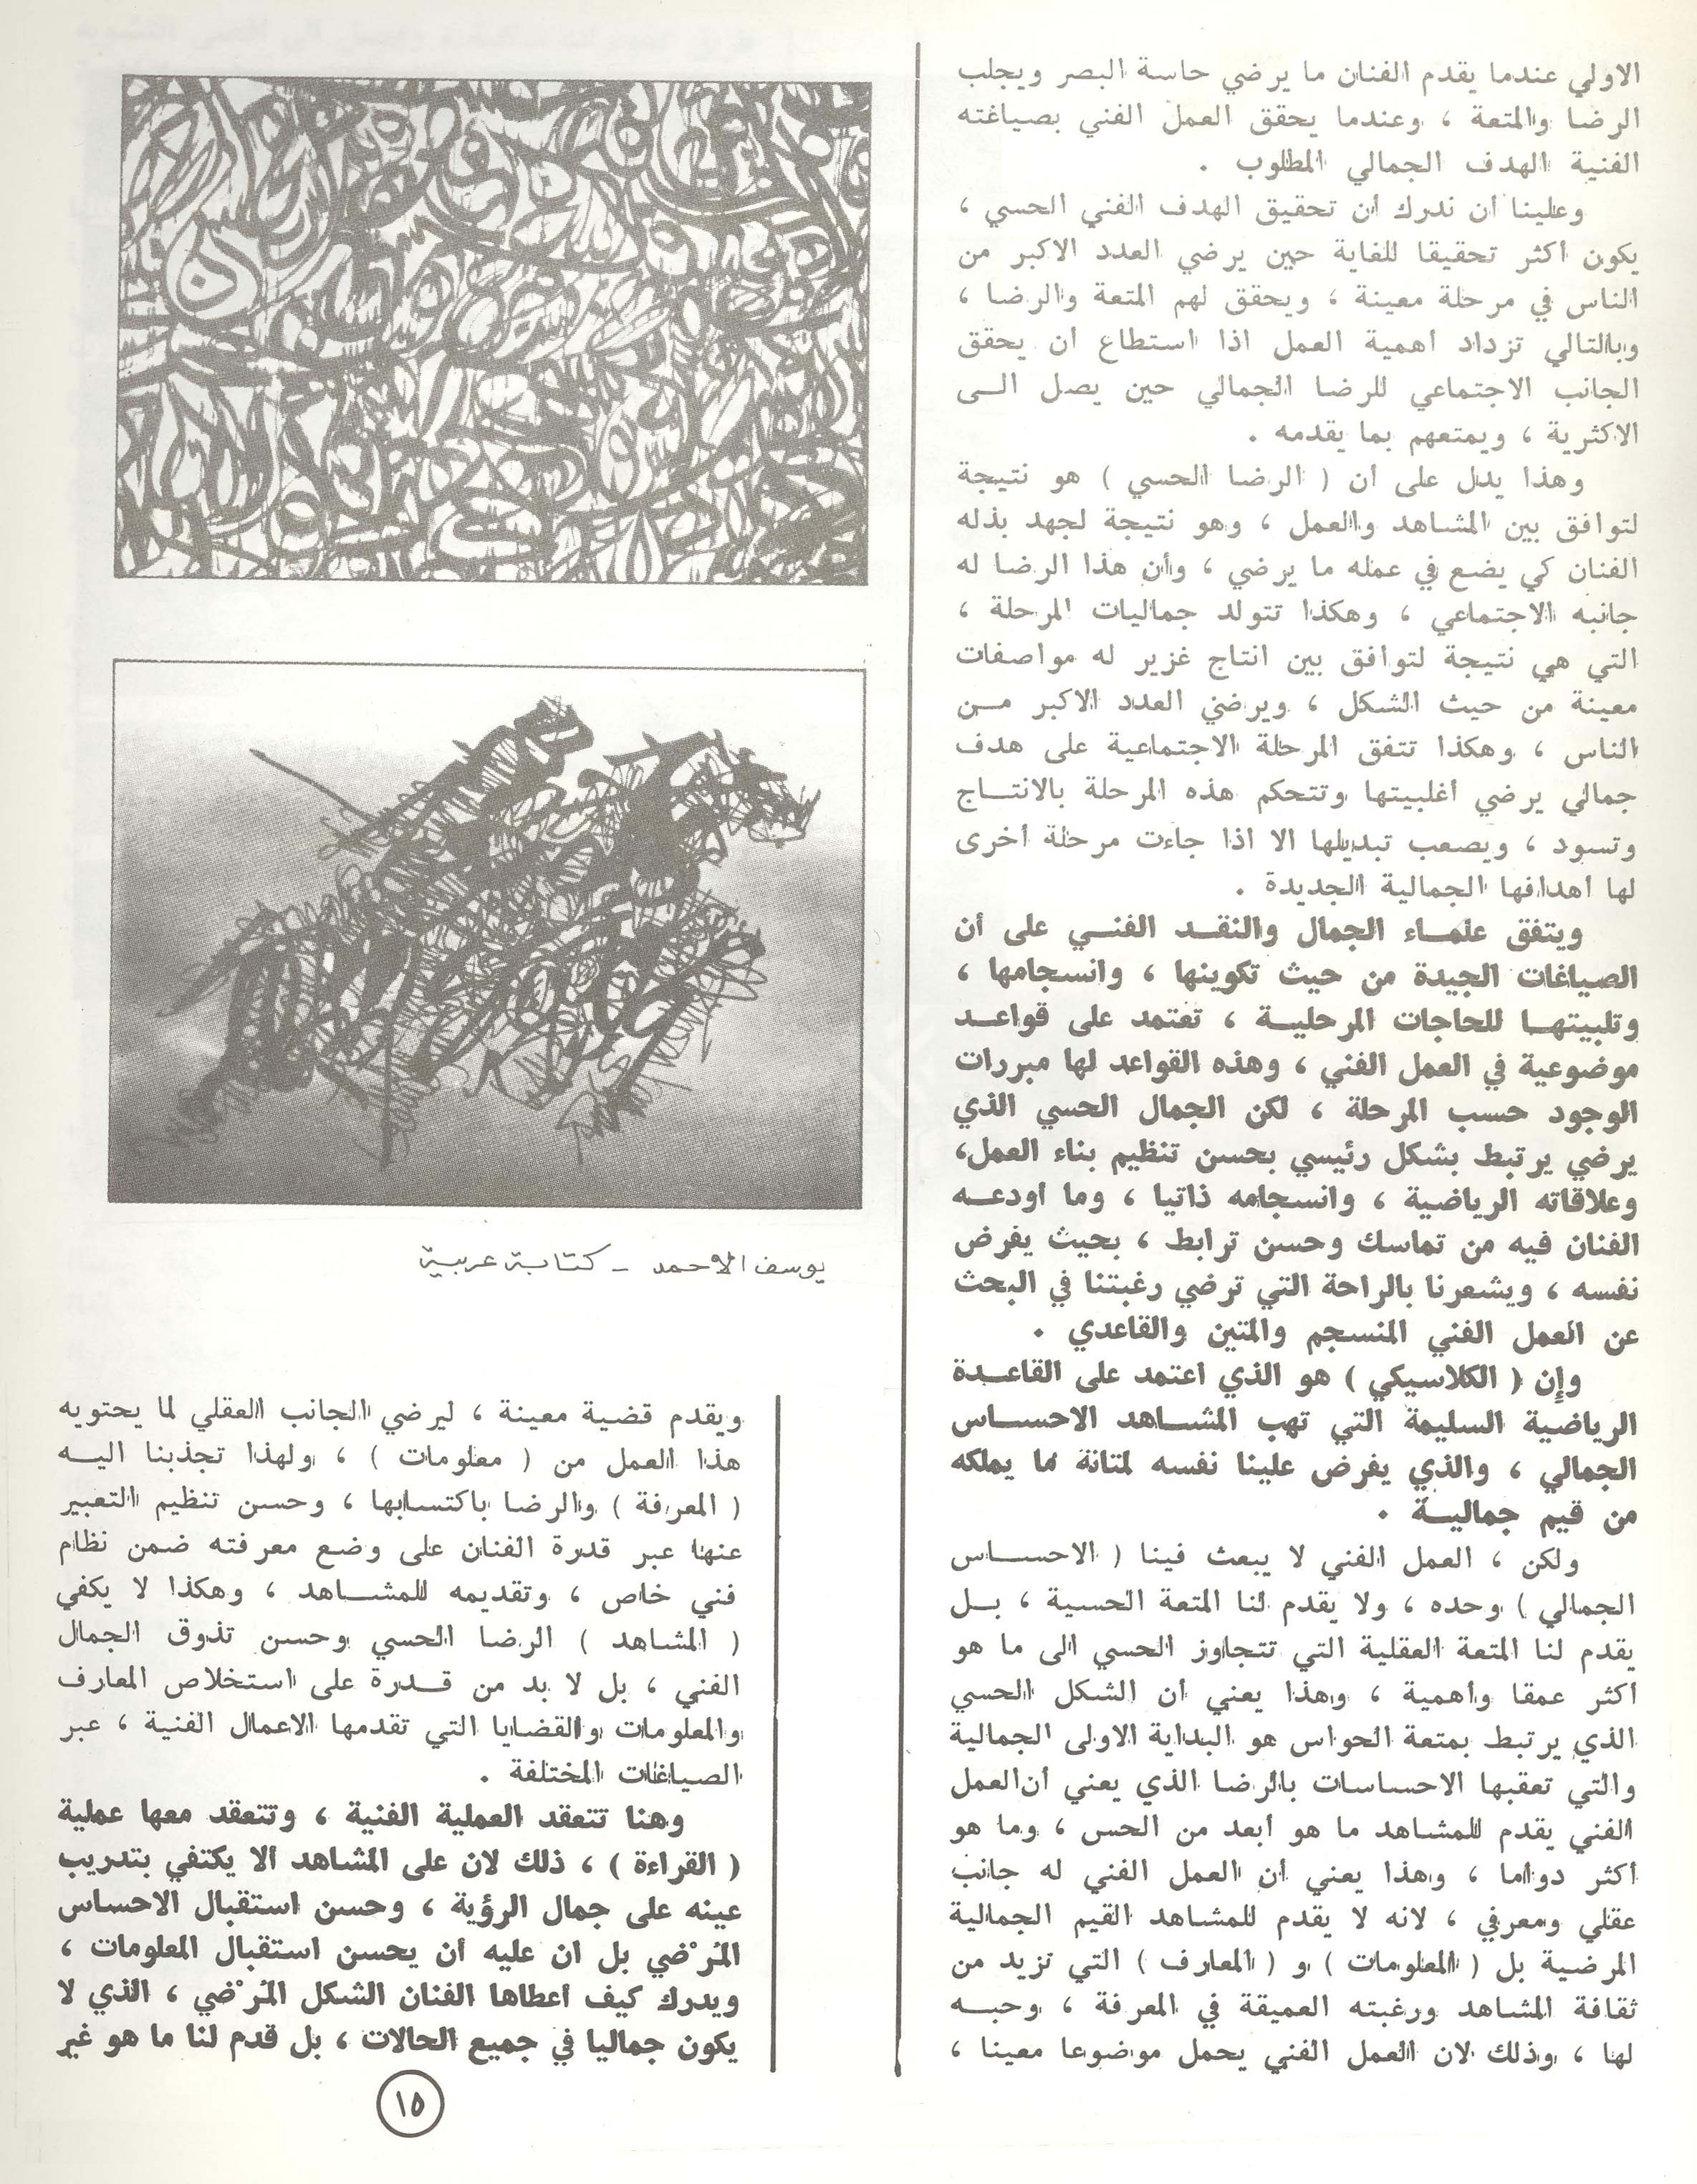 الاولي عندما يقدم الفنان ما يرضي حاسة البصر ويجلب
الرضا والمتعة ، وعندما يحقق العمل الفني بصياغته
الفنية الهدف الجمالي المطلوب .
وعلينا ان ندرك أن تحقيق الهدف الفني الحسي ،
يكون أكثر تحقيقا للغاية حين يرضي العدد الاكبر من
الناس في مرحلة معينة ، ويحقق لهم المتعة والرضا ،
وبالتالي تزداد أهمية العمل اذا استطاع ان يحقق
الجانب الاجتماعي للرضا الجمالي حين يصل الــى
الاكثرية ، ويمتعهم بما يقدمه .
وهذا يدل على ان ( الرضا الحسي ) هو نتيجة
لتوافق بين المشاهد والعمل ، وهو نتيجة لجهد بذله
الفنان كي يضع في عمله ما يرضي ، وأن هذا الرضا له
جانبه الاجتماعي ، وهكذا تتولد جماليات المرحلة ،
التي هي نتيجة لتوافق بين انتاج غزير له مواصفات
معينة من حيث الشكل ، ويرضي العدد الاكبر مــن
الناس ، وهكذا تتفق المرحلة الاجتماعية على هدف
جمالي يرضي أغلبيتها وتتحكم هذه المرحلة بالانتــاج
وتسود ، ويصعب تبديلها الا اذا جاءت مرحلة أخرى
لها أهدافها الجمالية الجديدة .
ويتفق علمــاء الجمال والنقــد الفنــي على أن
الصياغات الجيدة من حيث تكوينها ، وانسجامها ،
وتلبيتهــا للحاجات المرحليــة ، تعتمد على قواعــد
موضوعية في العمل الفني ، وهذه القواعد لها مبررات
الوجود حسب المرحلة ، لكن الجمال الحسي الذي
يرضي يرتبط بشكل رئيسي بحسن تنظيم بناء العمل،
وعلاقاته الرياضية ، وانسجامه ذاتيا ، وما أودعــه
الفنان فيه من تماسك وحسن ترابط ، بحيث يفرض
نفسه ، ويشعرنا بالراحة التي ترضي رغبتنا في البحث
عن العمل الفني المنسجم والمتين والقاعدي .
وإن ( الكلاسيكي ) هو الذي اعتمد على القاعــدة
الرياضية السليمة التي تهب المشــاهد الاحســاس
الجمالي ، والذي يفرض علينا نفسه لمتانة ما يملكه
من قيم جماليــة .
ولكن ، العمل الفني لا يبعث فينا ( الاحســاس
الجمالي ) وحده ، ولا يقدم لنا المتعة الحسية ، بــل
يقدم لنا المتعة العقلية التي تتجاوز الحسي الى ما هو
أكثر عمقا وأهمية ، وهذا يعني أن الشكل الحسي
الذي يرتبط بمتعة الحواس هو البداية الاولى الجمالية
والتي تعقبها الاحساسات بالرضا الذي يعني أن العمل
الفني يقدم للمشاهد ما هو أبعد من الحس ، وما هو
أكثر دواما ، وهذا يعني أن العمل الفني له جانب
عقلي ومعرفي ، لانه لا يقدم للمشاهد القيم الجمالية
المرضية بل ( المعلومات ) و ( المعارف ) التي تزيد من
ثقافة المشاهد ورغبته العميقة في المعرفة ، وحبــه
لها ، وذلك لان العمل الفني يحمل موضوعا معينا ،
يوسف الاحمد - كتابة عربية
ويقدم قضية معينة ، ليرضي الجانب العقلي لما يحتويه
هذا العمل من ( معلومات ) ، ولهذا تجذبنا اليــه
( المعرفة ) والرضا باكتسابها ، وحسن تنظيم التعبير
عنها عبر قدرة الفنان على وضع معرفته ضمن نظام
فني خاص ، وتقديمه للمشــاهد ، وهكذا لا يكفي
( المشاهد ) الرضا الحسي وحسن تذوق الجمال
الفني ، بل لا بد من قــدرة على استخلاص المعارف
والمعلومات والقضايا التي تقدمها الاعمال الفنية ، عبر
الصياغات المختلفة .
وهنا تتعقد العملية الفنية ، وتتعقد معها عملية
( القراءة ) ، ذلك لان على المشاهد ألا يكتفي بتدريب
عينه على جمال الرؤية ، وحسن استقبال الاحساس
المُرْضي بل ان عليه أن يحسن استقبال المعلومات ،
ويدرك كيف أعطاها الفنان الشكل المُرْضي ، الذي لا
يكون جماليا في جميع الحالات ، بل قدم لنا ما هو غير
١٥